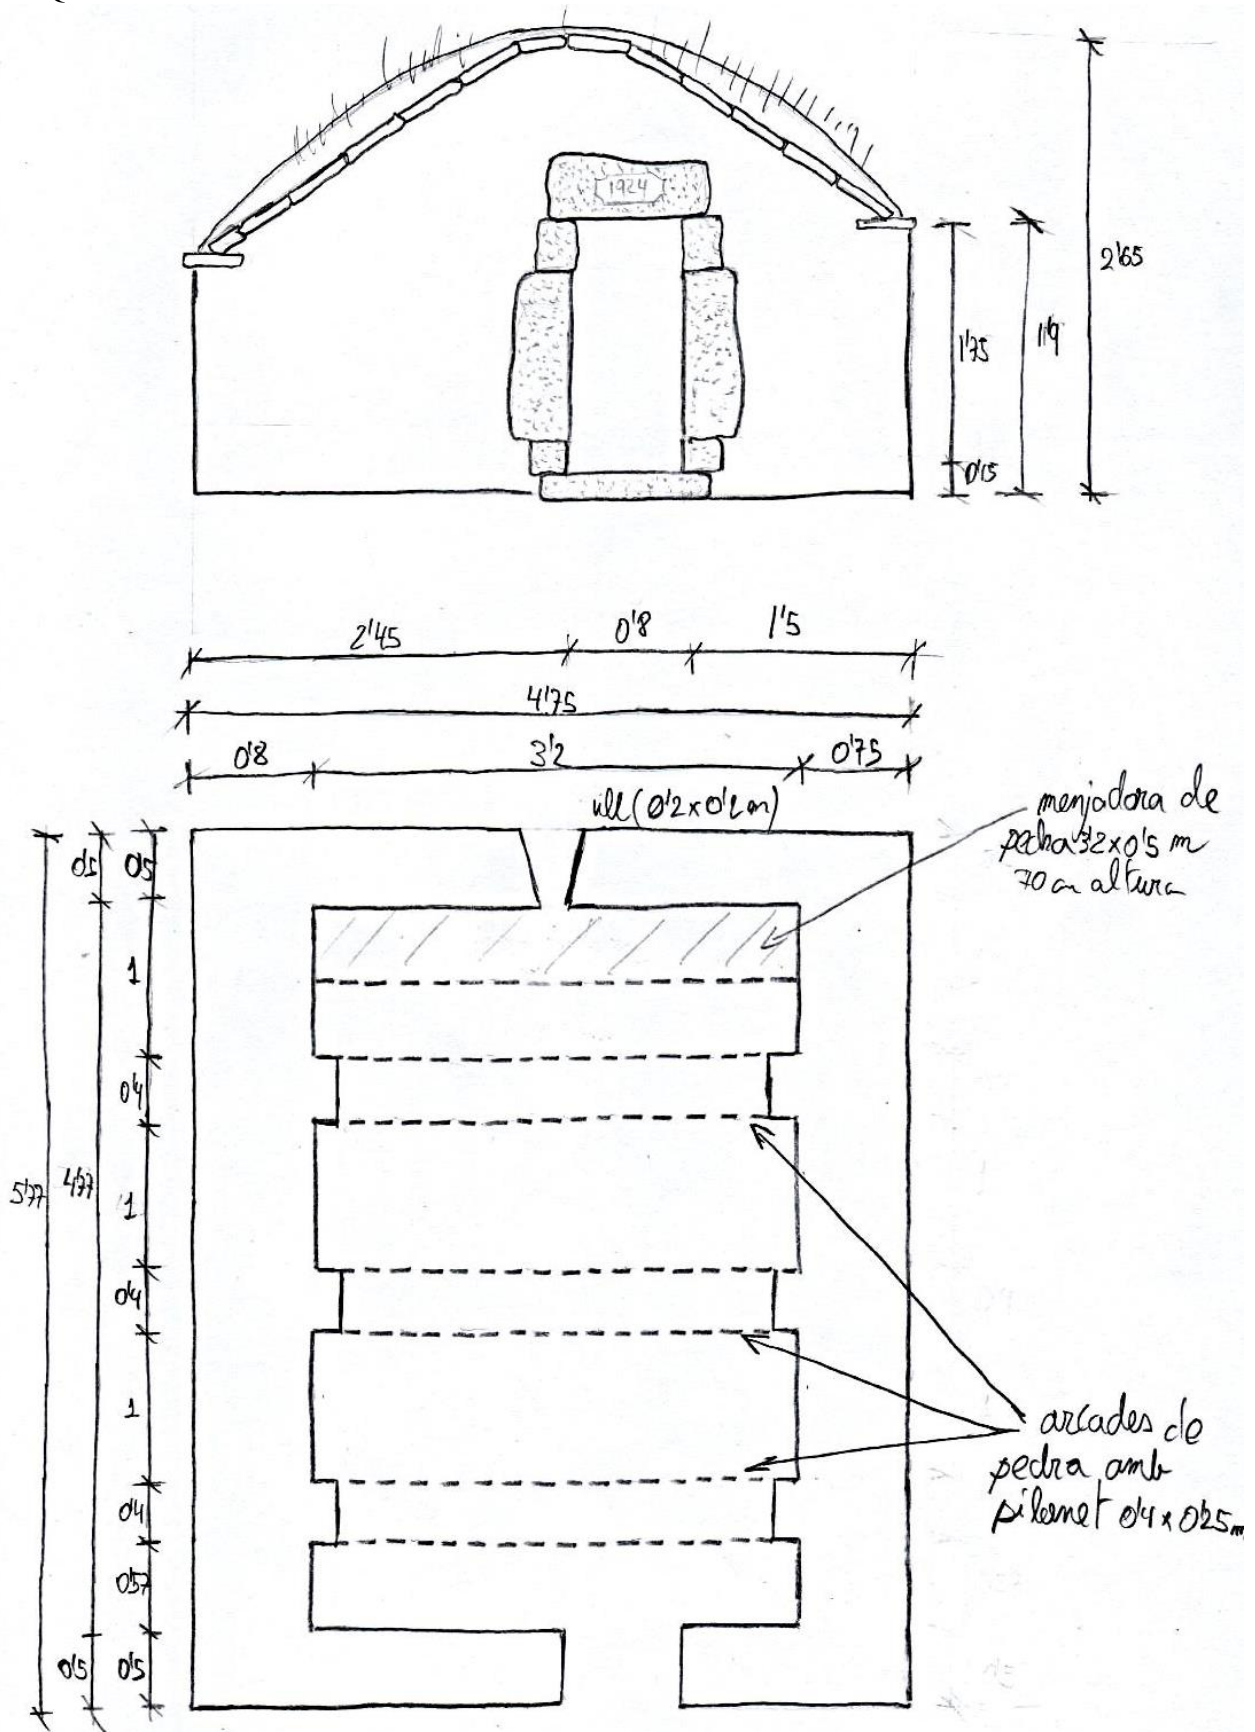 1924
2'65
1'75
1'9
0'15
2'45
0'8
1'5
4'75
0'8
3'2
0'75
ull (0'2x0'2m)
menjadora de
pedra 3'2x0'5 m
70 cm altura
0'5
0'5
1
0'4
1
5'77
4'77
0'4
1
0'4
0'57
0'5
0'5
arcades de
pedra amb
pilaret 0'4x0'25m